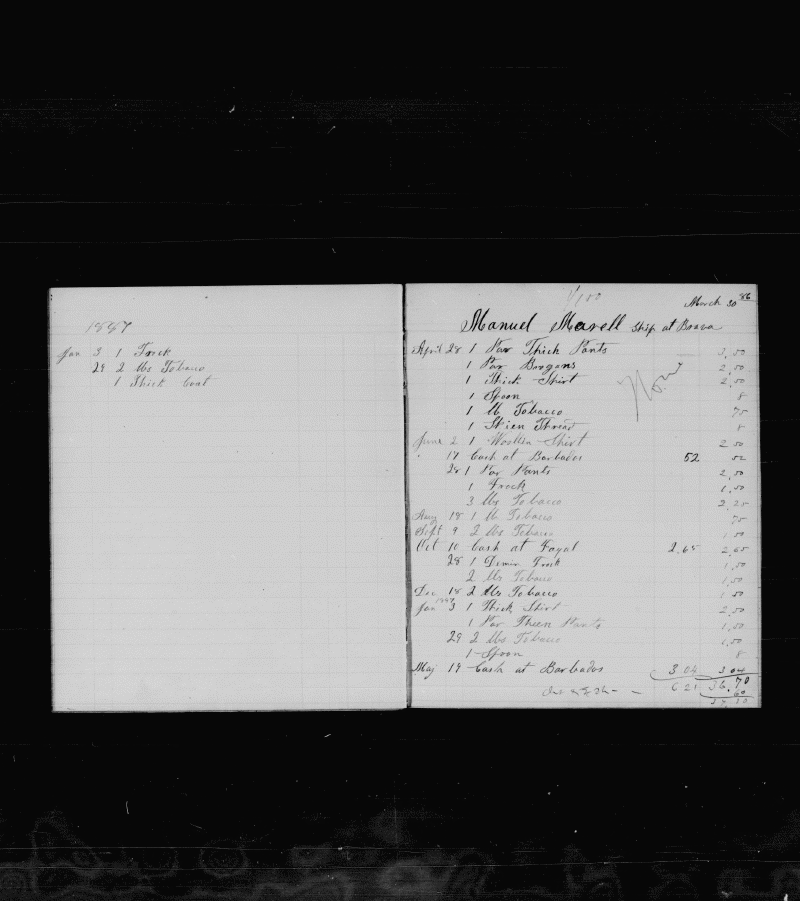 1887
Jan 3 1 Frock
29 2 lbs Tobacco
1 Thick Coat
1/100
March 30 86
Manuel Marell Ship at Brava
April 28 1 Par Thick Pants 3,50
1 Par Brogans 2,50
1 Thick Shirt 2,50
1 Spoon 8
1 lb Tobacco 75
1 Skien Thread 8
June 2 1 Woollen Shirt 2 50
" 14 Cash at Barbados 52 52
28 1 Par Pants 2,50
1 Frock 1,50
3 lbs Tobacco 2,25
Aug 18 1 lb Tobacco 75
Sept 9 2 lbs Tobacco 1 50
Oct 10 Cash at Fayal 2.65 2,65
28 1 Frock 1,50
2 lbs Tobacco 1,50
Dec 18 2 lbs Tobacco 1,50
Jan 1887 3 1 Thick Shirt 2,50
1 Par Theen Pants 1,50
29 2 lbs Tobacco 1,50
1 Spoon 8
May 14 Cash at Barbados 3 04 3 04
6 21 36.70
60
37 30